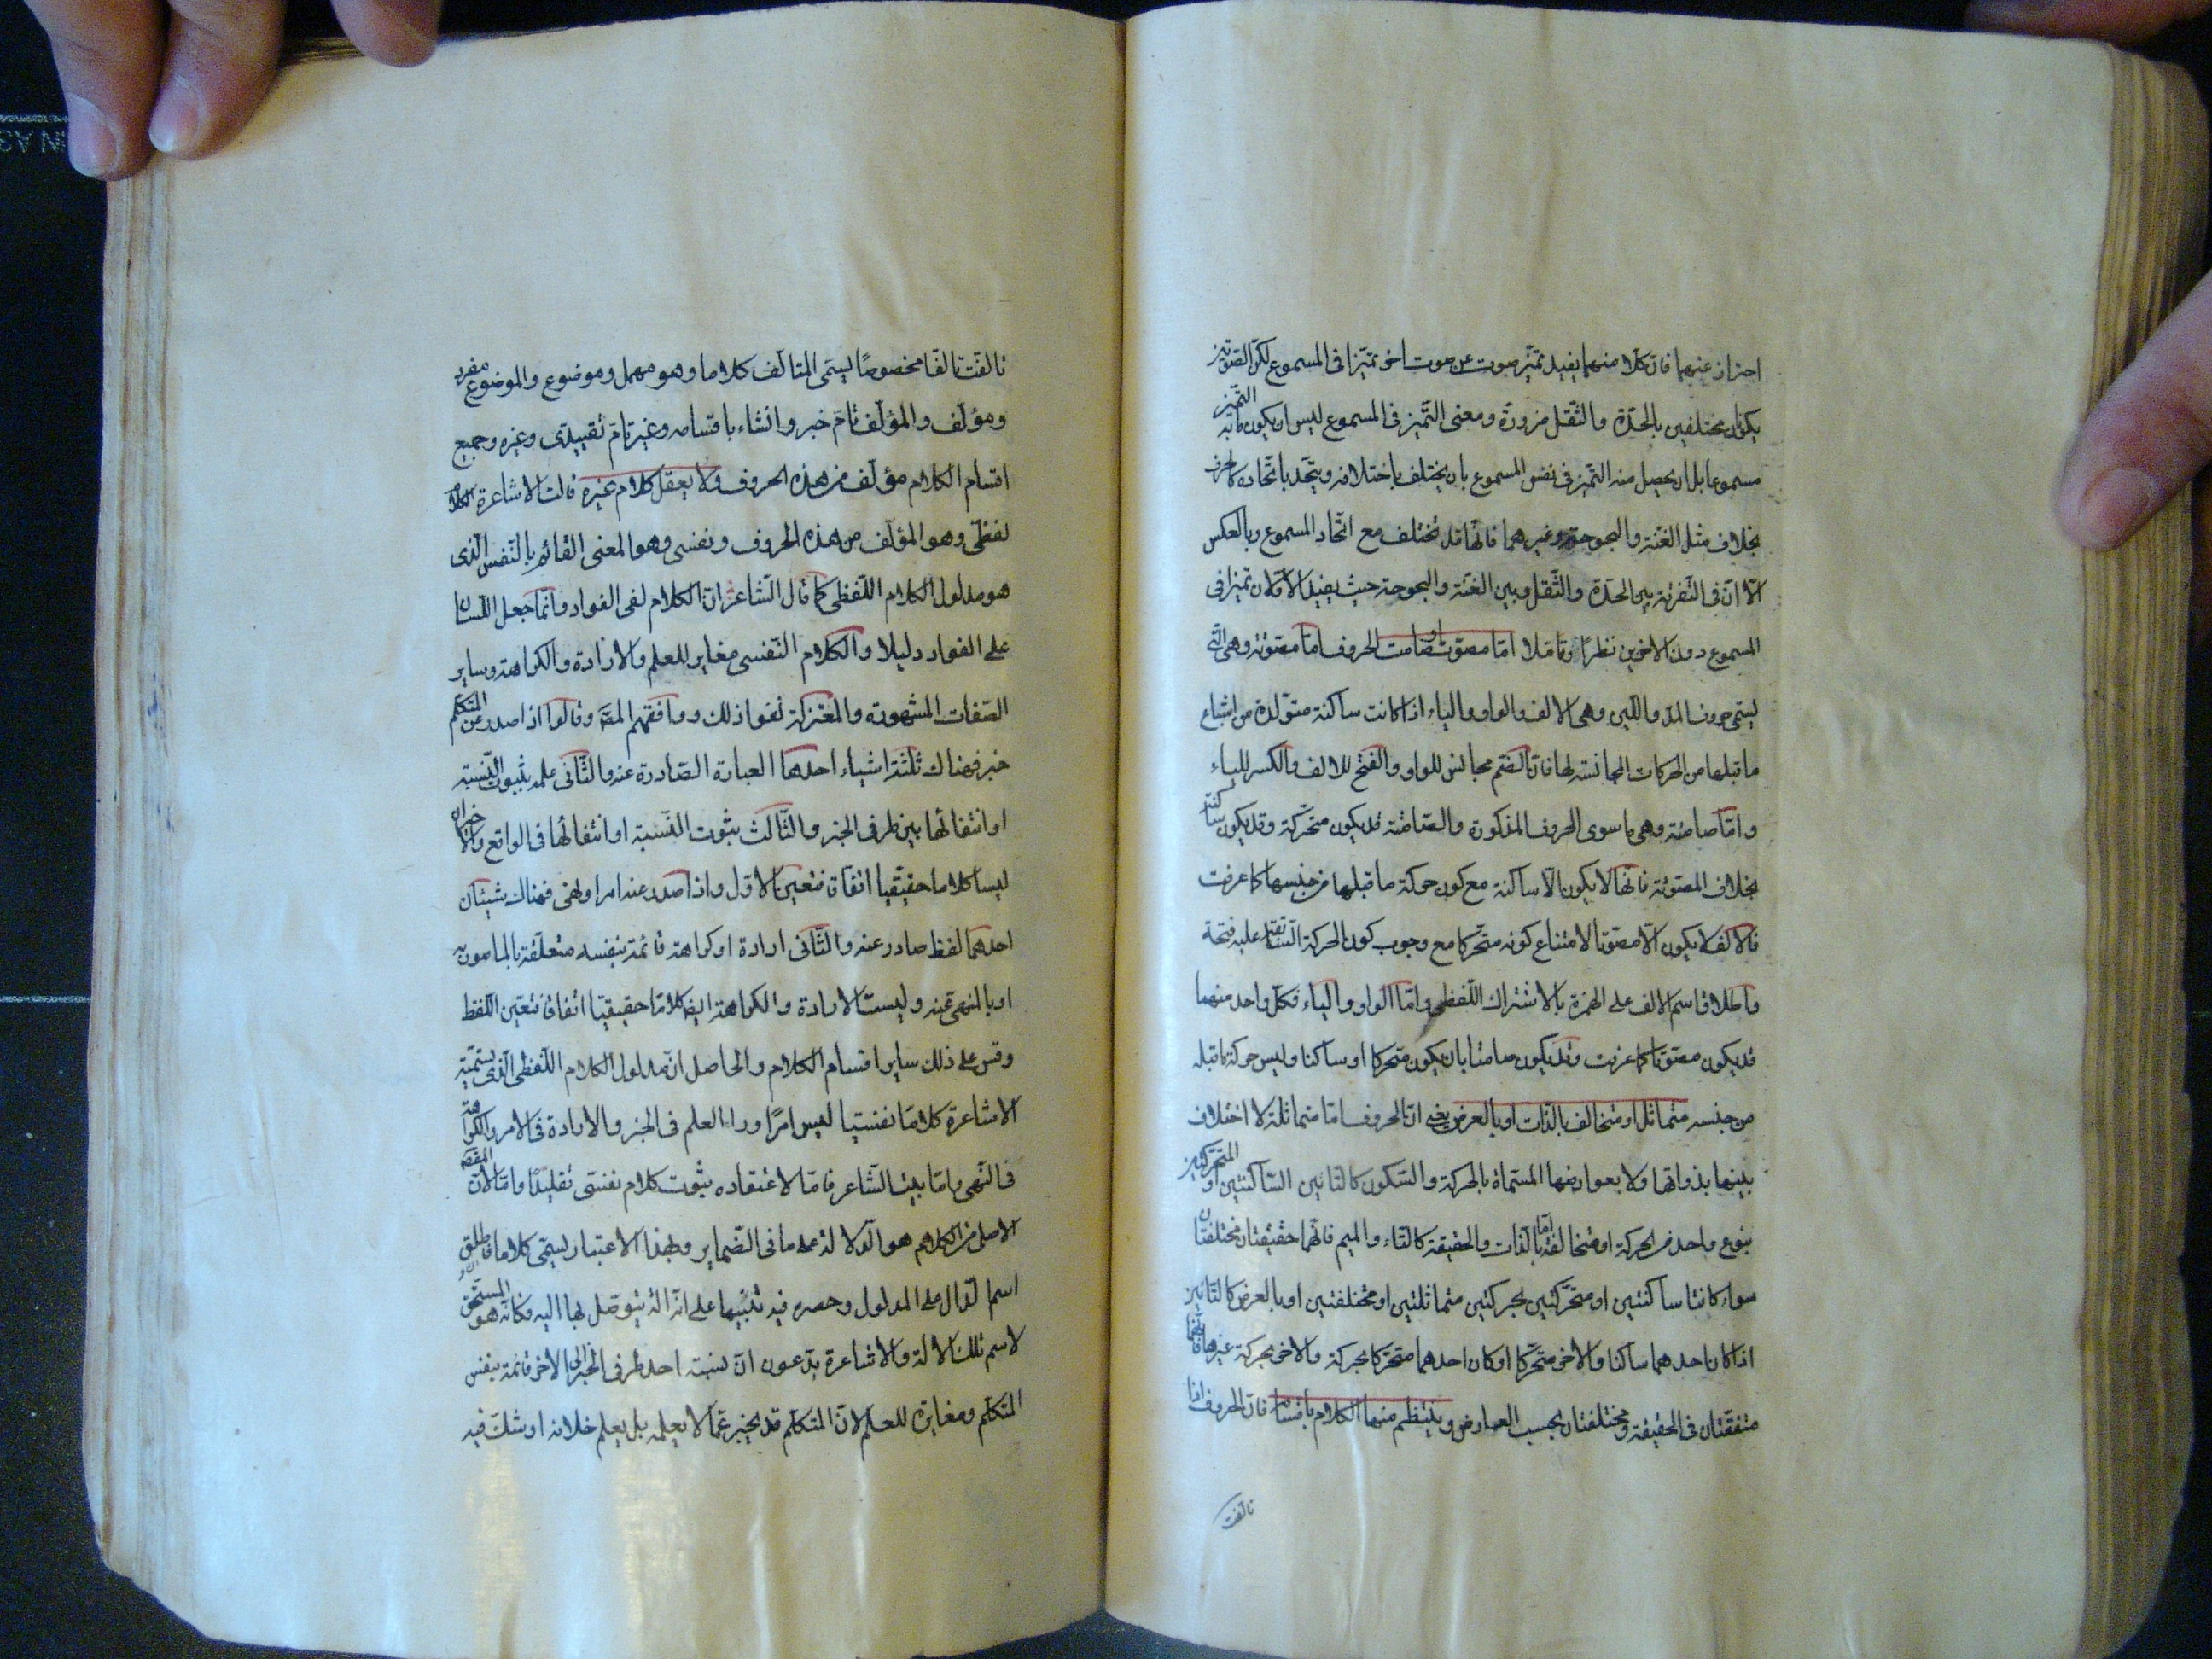 احتراز عنهما فان كلا منهما يفيد تميز صوت عن صوت اخر تميزا فى المسموع لكن الصوتين
يكونان مختلفين بالحدة والثقل ضرورة ومعنى التميز فى المسموع ليس ان يكون ما به التميز
مسموعا بل ان يحصل منه التميز فى نفس المسموع بان يختلف باختلافه ويتحد باتحاده كالحرف
بخلاف مثل الغنة والبحوحة وغيرهما فانها قد تختلف مع اتحاد المسموع وبالعكس
الا ان فى التفرقة بين الحدة والثقل وبين الغنة والبحوحة حيث يفيد الاولان تميزا فى
المسموع دون الاخرين نظرا وتاملا اما مصوت او صامت الحروف اما مصوتة وهى التى
يسمى حروف المد واللين وهى الالف والواو والياء اذا كانت ساكنة متولدة من اشباع
ما قبلها من الحركات المجانسة لها فان الضم مجانس للواو والفتح للالف والكسر للياء
واما صامتة وهى ما سوى الحروف المذكورة والصامتة قد يكون متحركة وقد يكون ساكنة
بخلاف المصوتة فانها لا يكون الا ساكنة مع كون حركة ما قبلها من جنسها كما عرفت
فالالف لا يكون الا مصوتا لامتناع كونه متحركا مع وجوب كون الحركة السابقة عليه فتحة
واطلاق اسم الالف على الهمزة بالاشتراك اللفظى واما الواو والياء فكل واحد منهما
قد يكون مصوتا كما عرفت وقد يكون صامتا بان يكون متحركا او ساكنا وليس حركة ما قبله
من جنسه متماثل او متخالف بالذات او بالعرض يعنى ان الحروف اما متماثلة لا اختلاف
بينها بذواتها ولا بعوارضها المسماة بالحركة والسكون كالتائين الساكنتين او المتحركتين
بنوع واحد من الحركة او متخالفة اما بالذات والحقيقة كالتاء والميم فانهما حقيقتان مختلفتان
سواء كانتا ساكنتين او متحركتين بحركتين متماثلتين او مختلفتين او بالعرض كالتائين
اذا كان احدهما ساكنا والاخر متحركا او كان احدهما متحركا بحركة والاخر بحركة غيرها فانهما
متفقتان فى الحقيقة ومختلفتان بحسب العوارض وينتظم منها الكلام باقسامه فان الحروف اذا
تالفت
تالفت تالفا مخصوصا يسمى المتالف كلاما وهو مهمل وموضوع والموضوع مفرد
ومؤلف والمؤلف تام خبر وانشاء باقسامه وغير تام تقييدى وغيره وجميع
اقسام الكلام مؤلف من هذه الحروف ولا يعقل كلام غيره قالت الاشاعرة الكلام
لفظى وهو المؤلف من هذه الحروف ونفسى وهو المعنى القائم بالنفس الذى
هو مدلول الكلام اللفظى كما قال الشاعر ان الكلام لفى الفواد وانما جعل اللسان
على الفواد دليلا والكلام النفسى مغاير للعلم والارادة والكراهة وساير
الصفات المشهورة والمعتزلة نفوا ذلك ووافقهم المص وقالوا اذا صدر عن المتكلم
خبر فهناك ثلثة اشياء احدها العبارة الصادرة عنه والثانى علمه بثبوت النسبة
او انتفائها بين طرفى الخبر والثالث ثبوت النسبة او انتفائها فى الواقع والاخيران
ليسا كلاما حقيقيا اتفاقا فتعين الاول واذا صدر عنه امر او نهى فهناك شيئان
احدهما لفظ صادر عنه والثانى ارادة او كراهة قائمة بنفسه متعلقة بالمامور به
او بالنهى عنه وليست الارادة والكراهة ايض كلاما حقيقيا اتفاقا فتعين اللفظ
وقس على ذلك ساير اقسام الكلام والحاصل ان مدلول الكلام اللفظى الذى يسميه
الاشاعرة كلاما نفسيا ليس امرا وراء العلم فى الخبر والارادة فى الامر والكراهة
فى النهى واما بيت الشاعر فاما لاعتقاده ثبوت كلام نفسى تقليدا واما لان المقصد
الاصلى من الكلام هو الدلالة على ما فى الضماير وبهذا الاعتبار يسمى كلاما فاطلق
اسم الدال على المدلول وحصره فيه تنبيها على انه الة يتوصل بها اليه فكانه هو المستحق
لاسم تلك الالة والاشاعرة يدعون ان نسبة احد طرفى الخبر الى الاخر قائمة بنفس
المتكلم ومغايرة للعلم لان المتكلم قد يخبر عما لا يعلمه بل يعلم خلافه او شك فيه